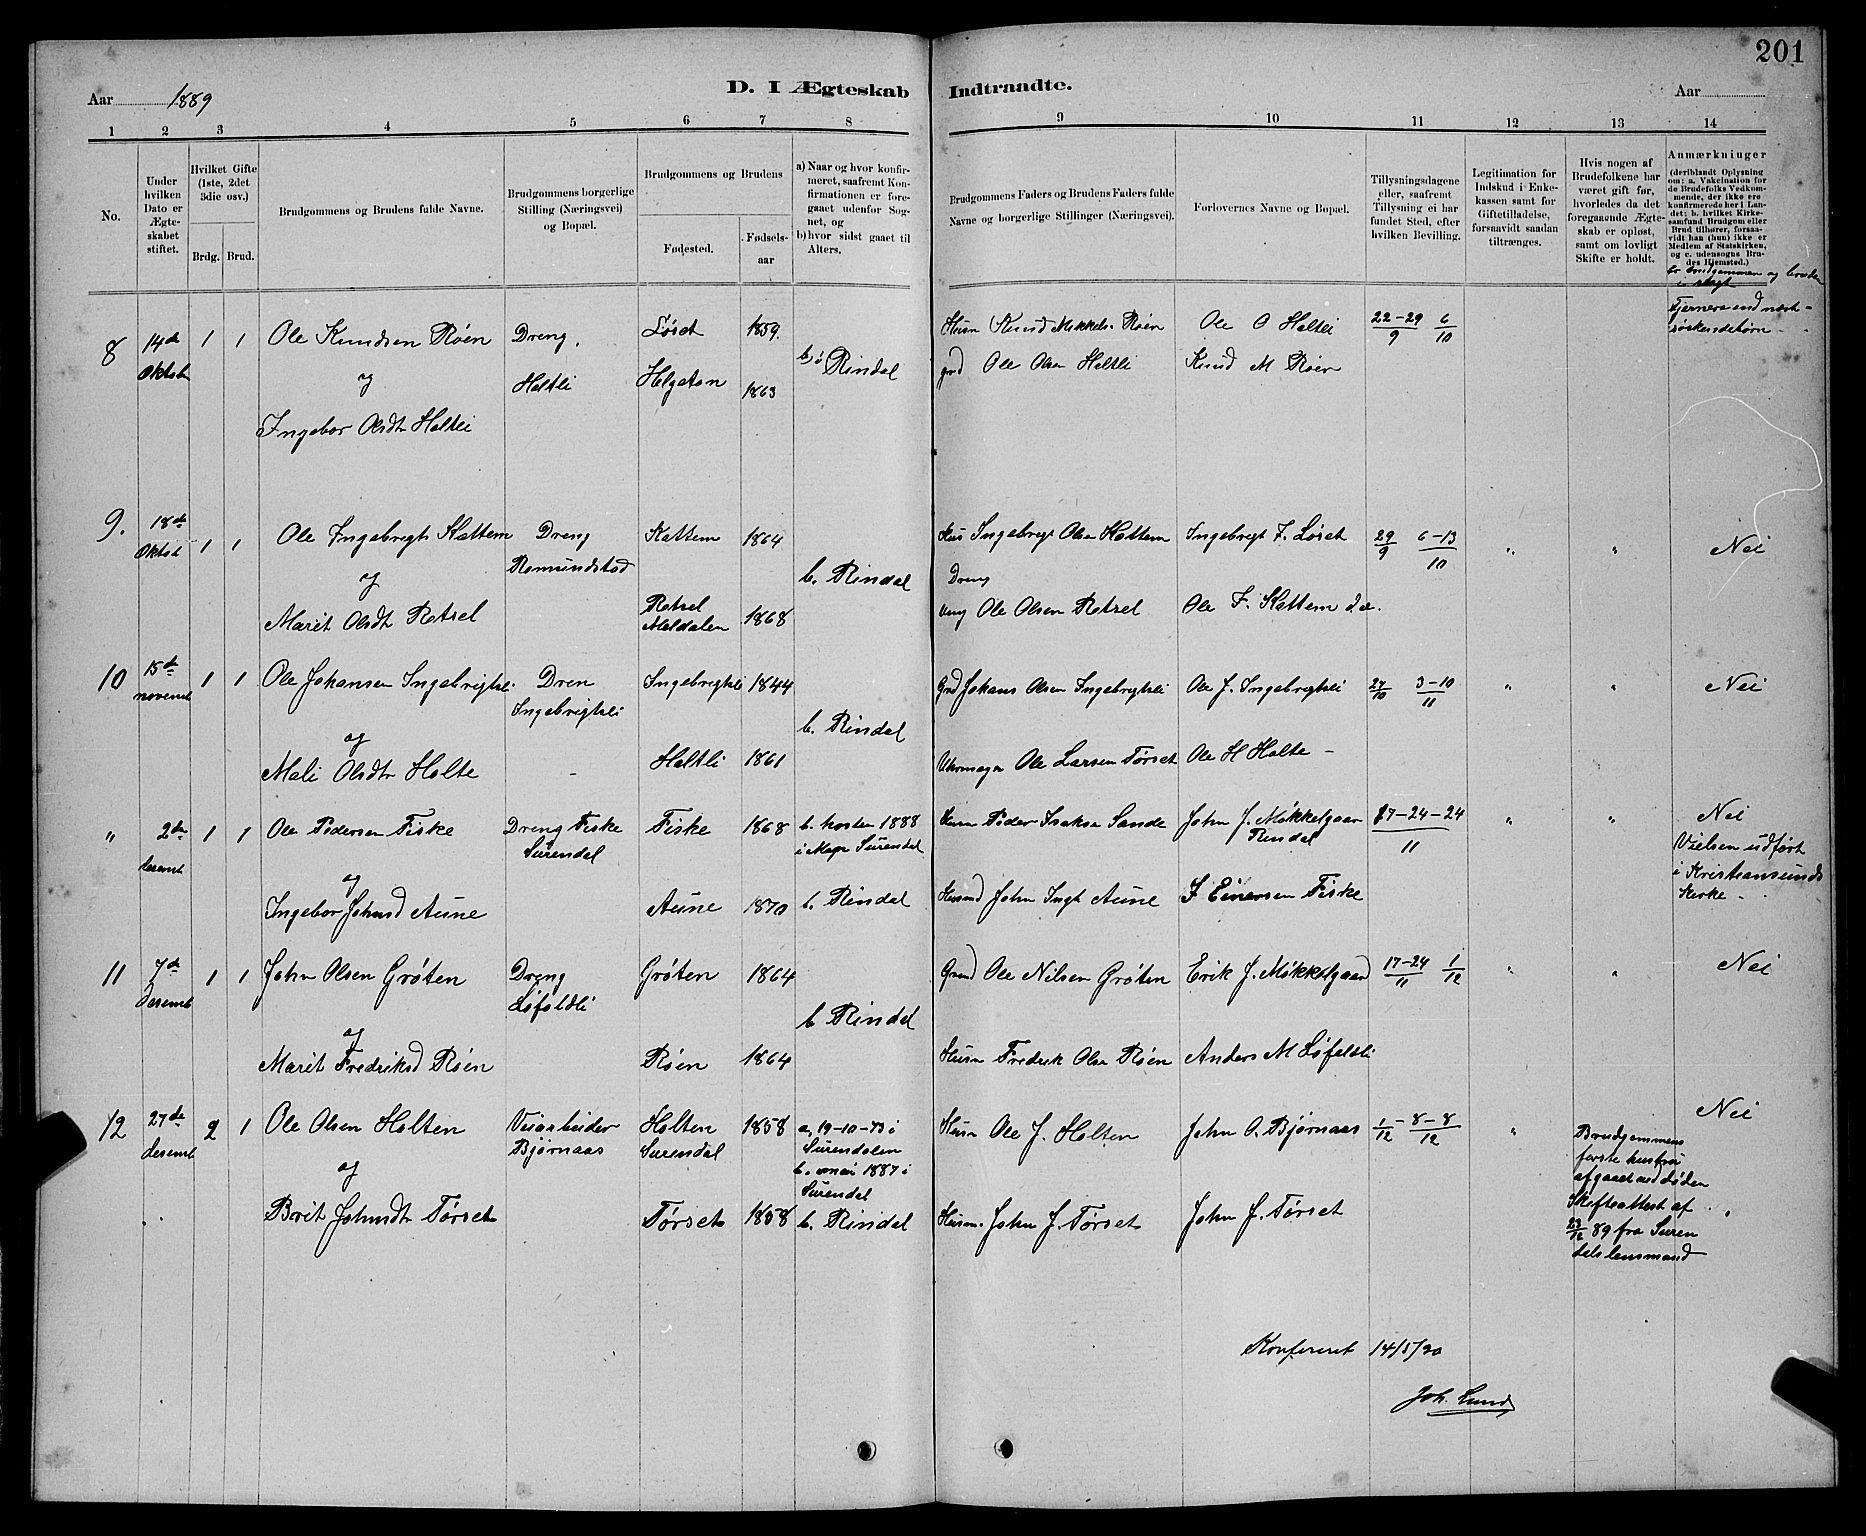 201
Aar 1889
D. I Ægteskab Indtraadte.
Aar
1 2 3 4 5 6 7 8 9 10 11 12 13 14
No.
Under hvilken Dato er Ægteskabet stiftet.
Hvilket Gifte (1ste, 2det 3die osv.)
Brdg. Brud.
Brudgommens og Brudens fulde Navne.
Brudgommens borgerlige Stilling (Næringsvei) og Bopæl.
Brudgommens og Brudens
Fødested.
Fødsels-aar
a) Naar og hvor konfirmeret, saafremt Konfirmationen er foregaaet udenfor Sognet, og
b) hvor sidst gaaet til Alters.
Brudgommens Faders og Brudens Faders fulde Navne og borgerlige Stillinger (Næringsvei).
Forlovernes Navne og Bopæl.
Tillysningsdagene eller, saafremt Tillysning ei har fundet Sted, efter hvilken Bevilling.
Legitimation for Indskud i Enkekassen samt for Giftetilladelse, forsaavidt saadan tiltrænges.
Hvis nogen af Brudefolkene har været gift før, hvorledes da det foregaaende Ægteskab er opløst, samt om lovligt Skifte er holdt.
Anmærkniuger
(deriblandt Oplysning om: a. Vakcination for de Brudefolks Vedkommende, der ikke ere konfirmerede her i Landet; b. hvilket Kirkesamfund Brudgom eller Brud tilhører, forsaavidt han (hun) ikke er Medlem af Statskirken, og c. udensogns Brudes Hjemsted.)
Er brudgommen og bruden i slegt
8 14de Oktob 1 1 Ole Knudsen Røen Dreng, Løset 1859.
Husm Knud Mikkels. Røen Ole O Holtli 22–29/9 6/10
Fjernere end næst-søskendebørn
og Holtli Helgeton 1863 b, i Rindal
grd Ole Olsen Holtli Knud M Røen
Ingebor Olsdtr Holtli
9. 18de Oktob 1 1 Ole Ingebregt Kattem Dreng Kattem 1864
Hus Ingebregt Olsen Kattem Ingebregt F. Løset 29/9 6–13/10 " " Nei
og Romundstad b. Rindal
Dreng
Marit Olsdtr Rotsel Rotsel Meldalen 1868
Ung Ole Olsen Rotsel Ole F. Kattem d.e.
10 15de novemb 1 1 Ole Johansen Ingebrigtsli Dren Ingebrigtsli 1844
Grd Johans Olsen Ingebrigtsli Ole J. Ingebrigtsli 27/10 3–10/11 " " Nei
Ingebrigtsli
og b. Rindal
Mali Olsdtr Holte – Holtli 1861
Uhrmager Ole Larsen Tørset Ole H Holte –
" 2de desemb 1 1 Ole Pedersen Fiske Dreng Fiske Surendal Fiske 1868 b. høsten 1888 i Mo pr Surendal
Husm Peder Isaksen Sande John J. Møkkelgaar Rindal 17–24–24/11 " " Nei
Vielsen udført i Kristiansunds Kirke –
og
Ingebor Johnsd Aune Aune 1870 b. Rindal
Husmd John Ingb Aune I Einersen Fiske
11 7de Desemb 1 1 John Olsen Grøten Dreng Løfoldli Grøten 1864
Grmd Ole Nilsen Grøten Erik J. Møkkelgaard 17–24/11 1/12 " " Nei
og b Rindal
Marit Fredriksd Røen Røen 1864
Husm Fredrik Olsen Røen Anders M Løfoldli
12 27de desemb 2 1 Ole Olsen Holten Veiarbeider Bjørnaas Holten Surendal 1858 a, 19-10-73 i Surendalen b. mai 1887 i Surendal
Husm Ole J. Holten John O. Bjørnaas 1/12 – 8 – 8/12 " Nei
Brudgommens første hustru afgaaet ved døden Skifteattest af 23/12 89 fra Surendals lensmand "
og
Brit Johnsdtr Tørset Tørset 1858 b. Rindal
Husm. John J. Tørset John J. Tørset
Konfereret 14/5/90
Joh. Lund